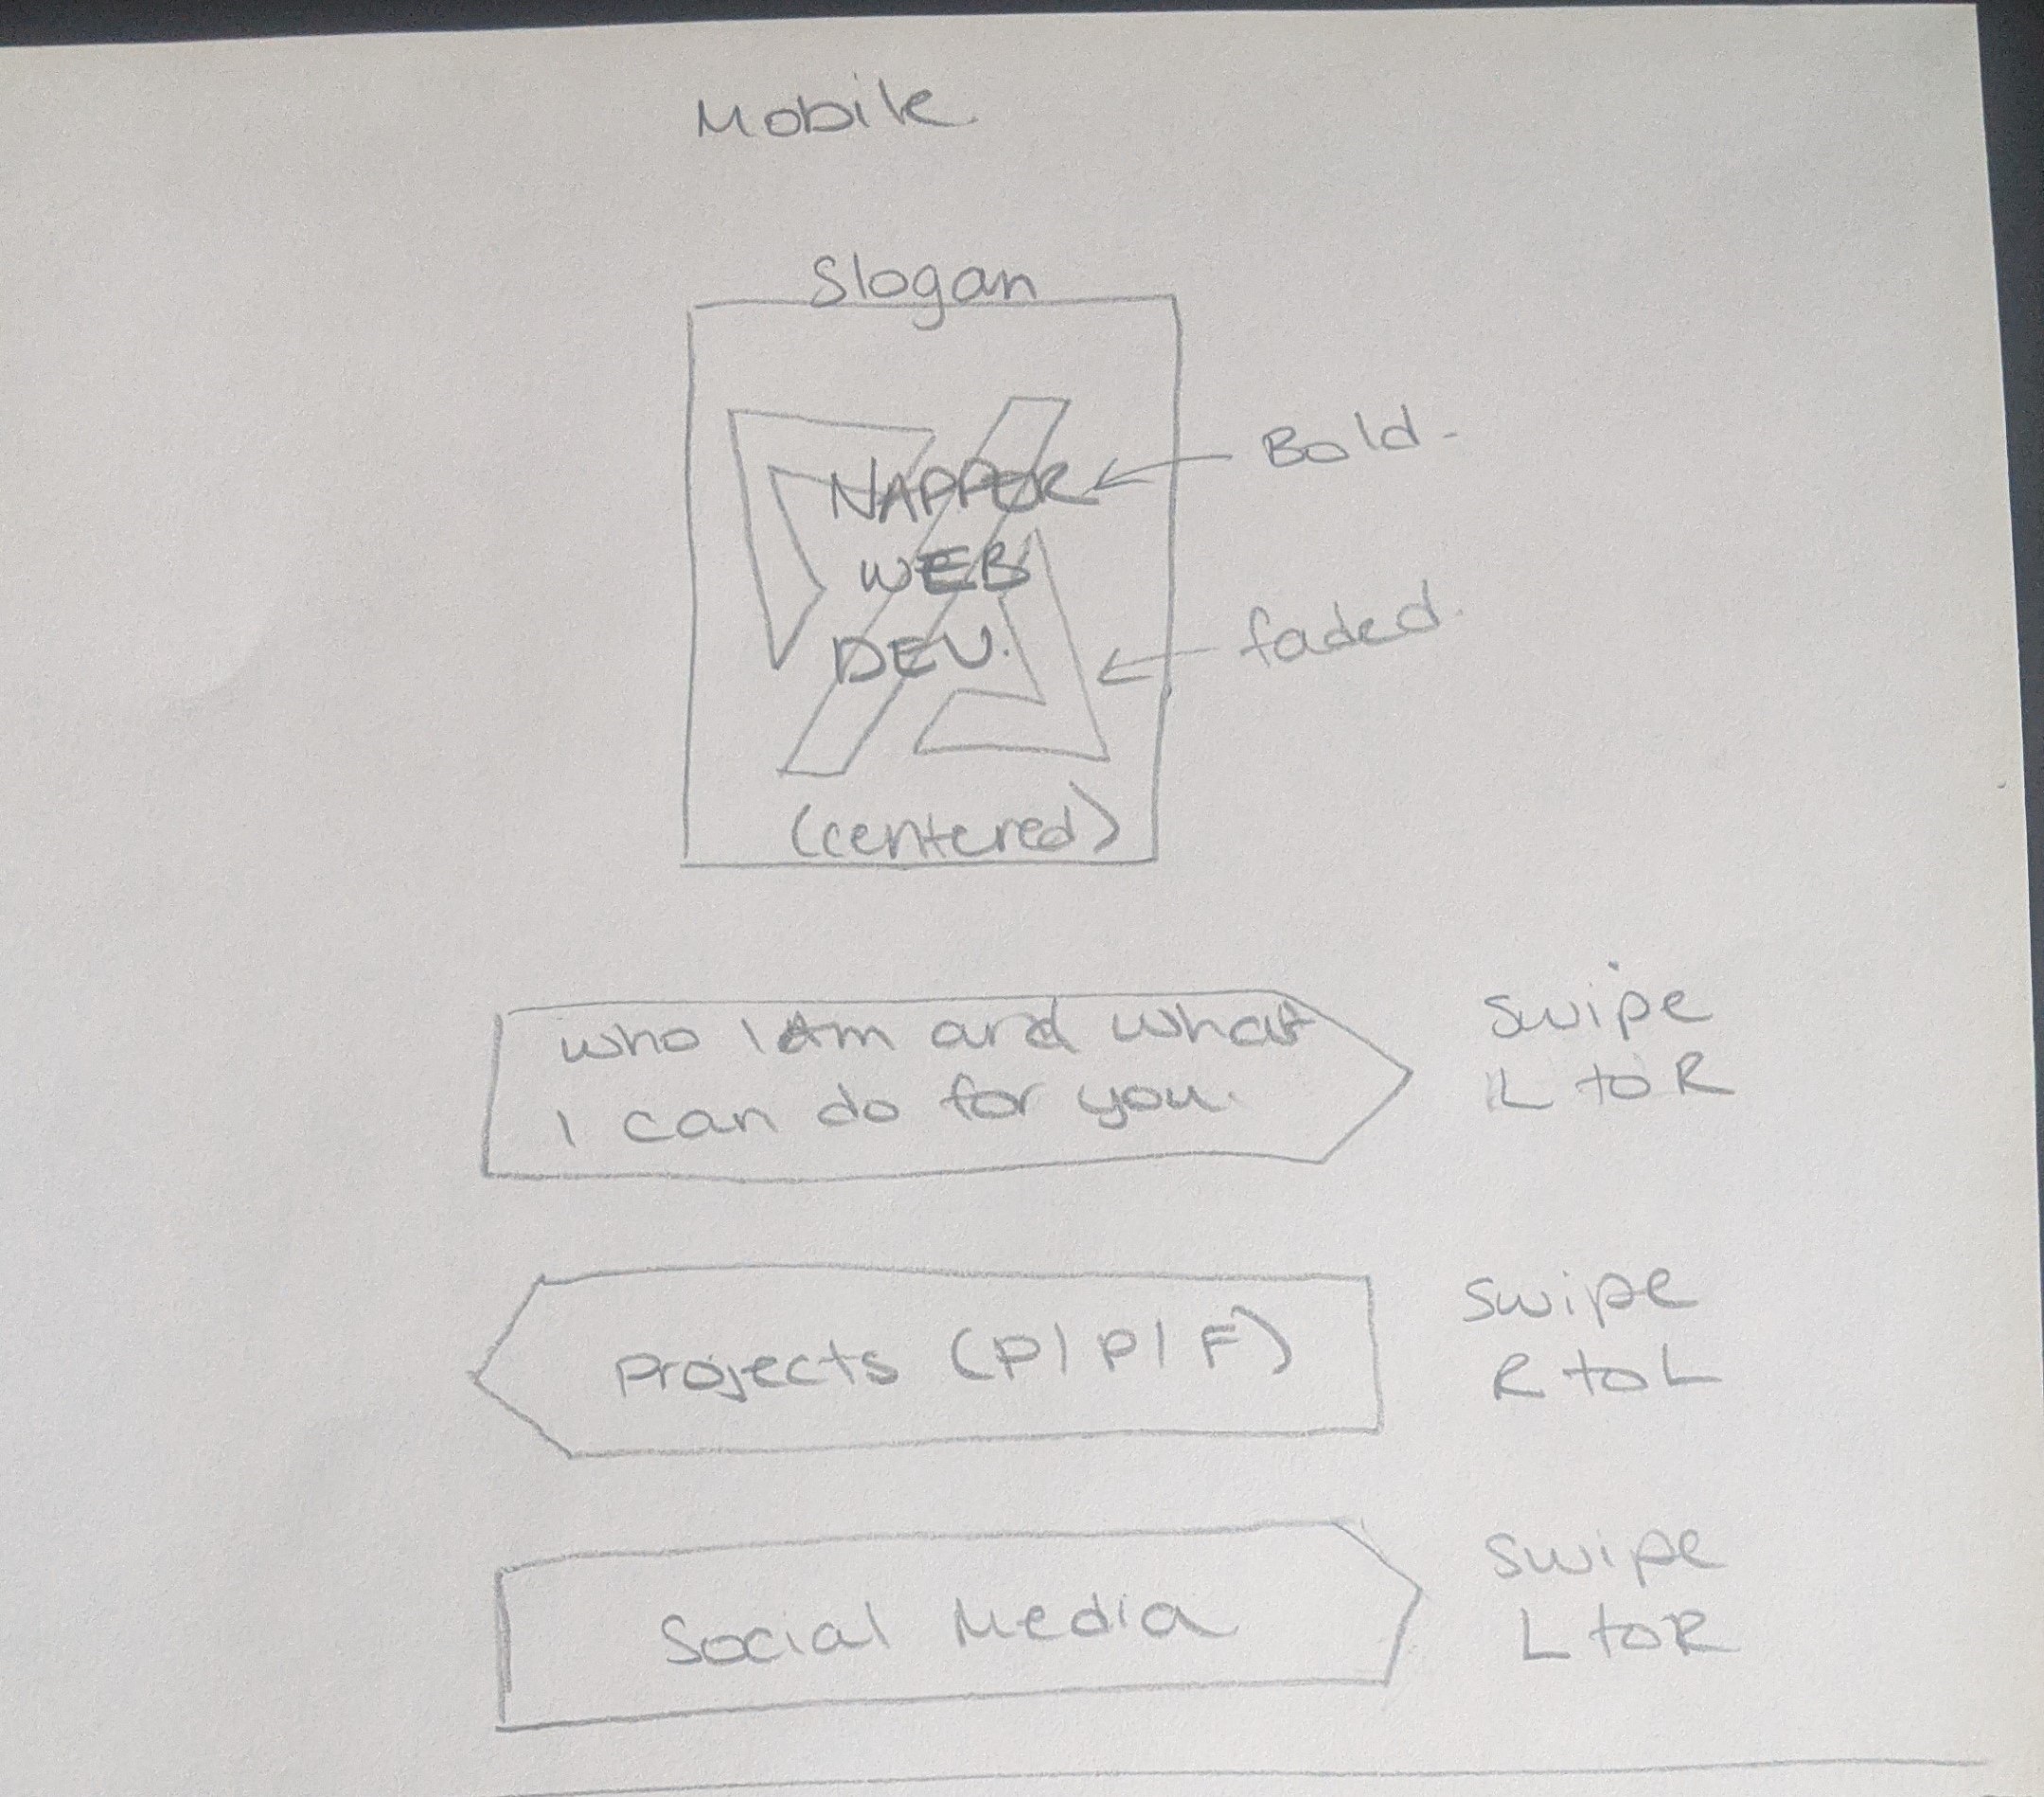 Mobile
Slogan
NAPPER
Bold.
WEB
faded.
DEV.
(centered)
who I Am and what
I can do for you.
Swipe
L to R
Projects (P|P|F)
Swipe
R to L
Social Media
Swipe
L to R